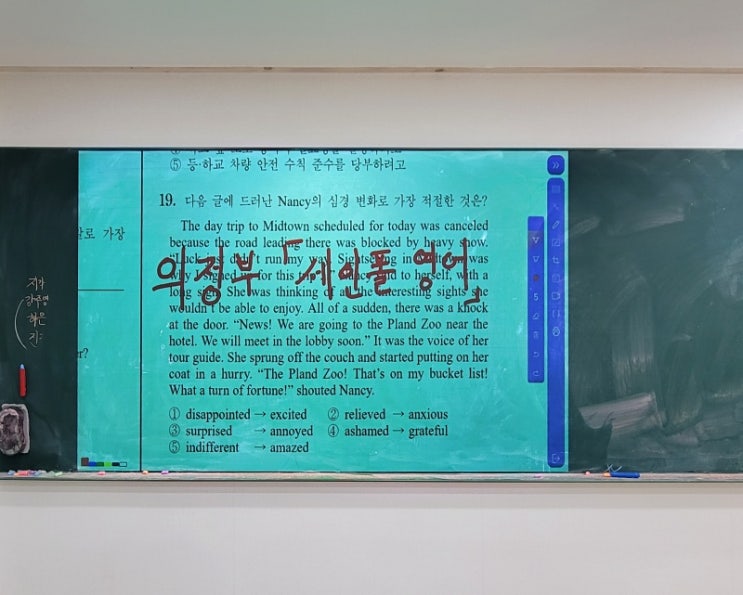 ⑤ 등·하교 차량 안전 수칙 준수를 당부하려고
19. 다음 글에 드러난 Nancy의 심경 변화로 가장 적절한 것은?
The day trip to Midtown scheduled for today was canceled
because the road leading there was blocked by heavy snow.
run my
was
for this to herself, with a
long She was thinking of all the interesting sights
wouldn't be able to enjoy. All of a sudden, there was a knock
at the door. “News! We are going to the Pland Zoo near the
hotel. We will meet in the lobby soon.” It was the voice of her
tour guide. She sprung off the couch and started putting on her
coat in a hurry. “The Pland Zoo! That's on my bucket list!
What a turn of fortune!” shouted Nancy.
① disappointed → excited ② relieved → anxious
③ surprised → annoyed ④ ashamed → grateful
⑤ indifferent → amazed
의정부 「세인돌 영어」
로 가장